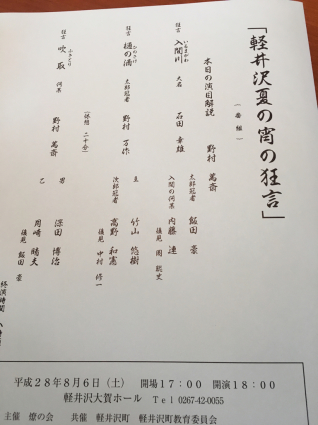 「軽井沢夏の宵の狂言」
（番組）
本日の演目解説　野村 萬斎
狂言　入間川　いるまがわ
大名　石田 幸雄
太郎冠者　飯田 豪
入間の何某　内藤 連
後見
狂言　樋の酒　ひのさけ
太郎冠者　野村 万作
主　竹山 悠樹
次郎冠者　高野 和憲
後見　中村 修一
（休憩　二十分）
狂言　吹取　ふきとり
何某　野村 萬斎
男　深田 博治
乙　月崎 晴夫
後見　飯田 豪
終演時間
平成28年8月6日（土）　開場17：00　開演18：00
軽井沢大賀ホール　Tel 0267-42-0055
主催　燎の会　共催　軽井沢町　軽井沢町教育委員会